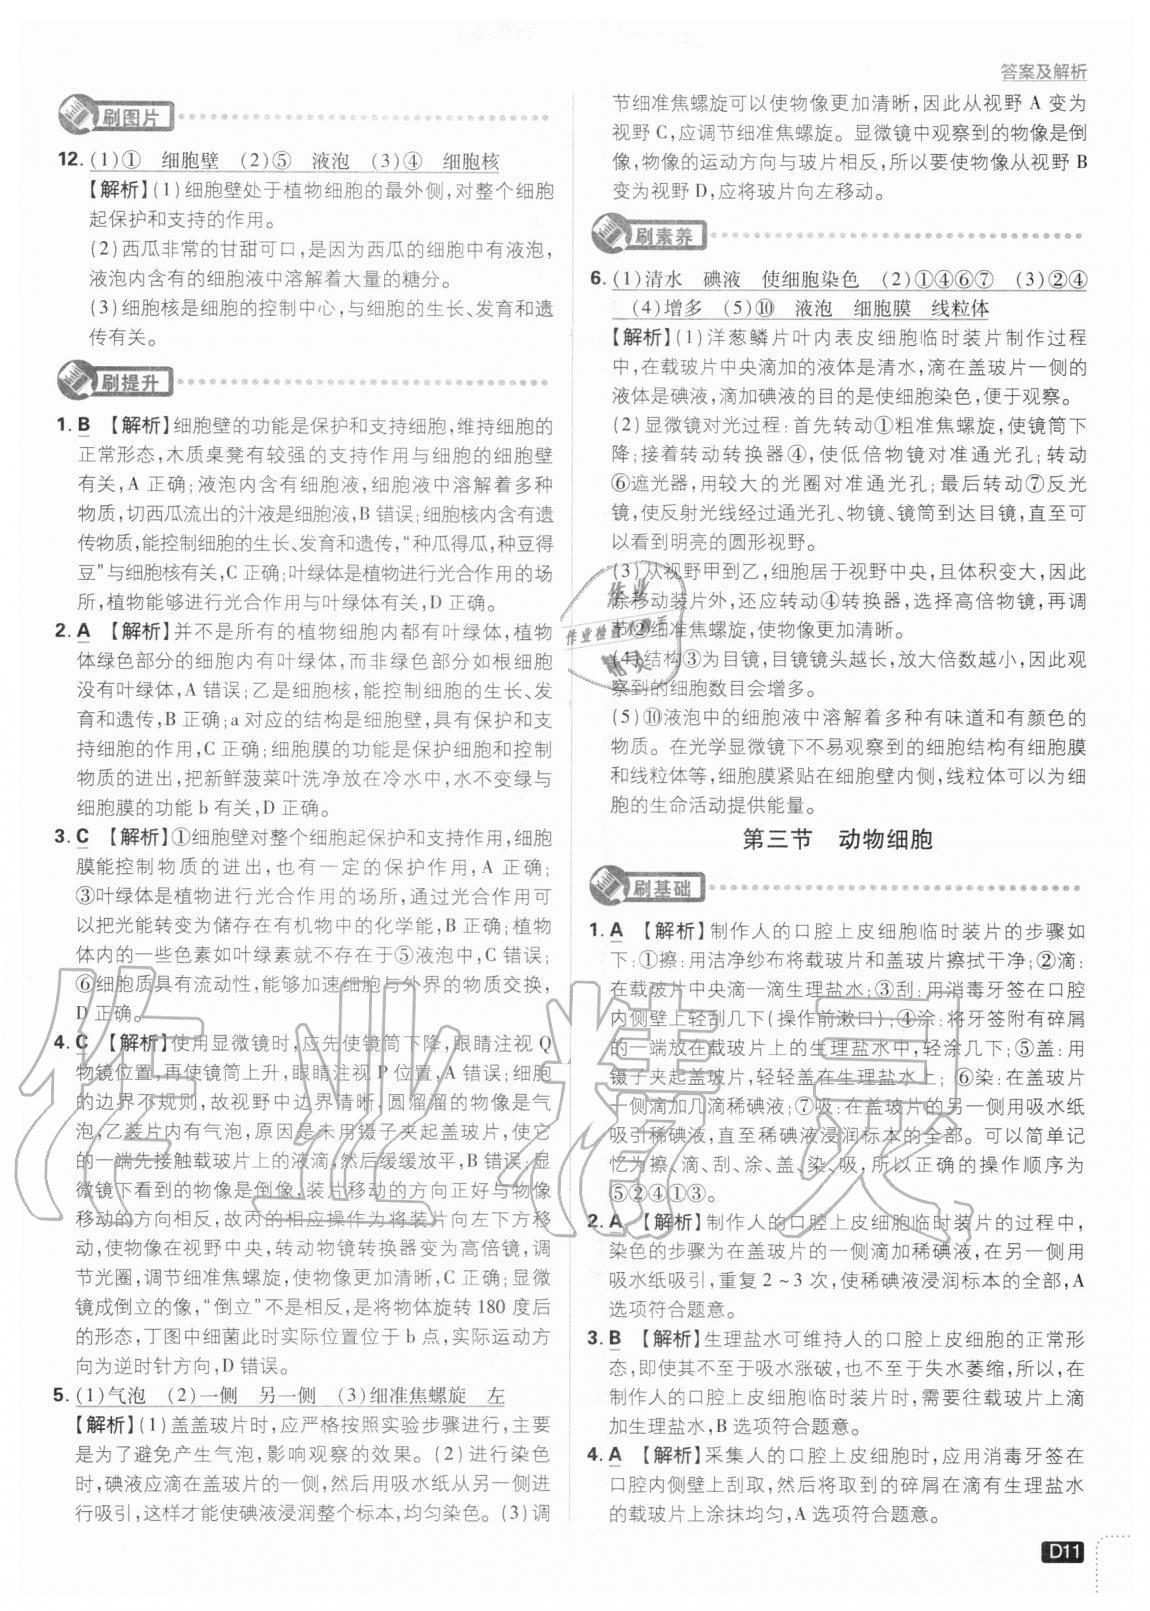 答案及解析
刷图片
12. (1)① 细胞壁 (2)⑤ 液泡 (3)④ 细胞核
【解析】(1)细胞壁处于植物细胞的最外侧,对整个细胞
起保护和支持的作用。
(2)西瓜非常的甘甜可口,是因为西瓜的细胞中有液泡,
液泡内含有的细胞液中溶解着大量的糖分。
(3)细胞核是细胞的控制中心,与细胞的生长、发育和遗
传有关。
刷提升
1. B 【解析】细胞壁的功能是保护和支持细胞,维持细胞的
正常形态,木质桌凳有较强的支持作用与细胞的细胞壁
有关,A 正确;液泡内含有细胞液,细胞液中溶解着多种
物质,切西瓜流出的汁液是细胞液,B 错误;细胞核内含有遗
传物质,能控制细胞的生长、发育和遗传,“种瓜得瓜,种豆得
豆”与细胞核有关,C 正确;叶绿体是植物进行光合作用的场
所,植物能够进行光合作用与叶绿体有关,D 正确。
2. A 【解析】并不是所有的植物细胞内都有叶绿体,植物
体绿色部分的细胞内有叶绿体,而非绿色部分如根细胞
没有叶绿体,A 错误;乙是细胞核,能控制细胞的生长、发
育和遗传,B 正确;a 对应的结构是细胞壁,具有保护和支
持细胞的作用,C 正确;细胞膜的功能是保护细胞和控制
物质的进出,把新鲜菠菜叶洗净放在冷水中,水不变绿与
细胞膜的功能 b 有关,D 正确。
3. C 【解析】①细胞壁对整个细胞起保护和支持作用,细胞
膜能控制物质的进出,也有一定的保护作用,A 正确;
③叶绿体是植物进行光合作用的场所,通过光合作用可
以把光能转变为储存在有机物中的化学能,B 正确;植物
体内的一些色素如叶绿素就不存在于⑤液泡中,C 错误;
⑥细胞质具有流动性,能够加速细胞与外界的物质交换,
D 正确。
4. C 【解析】使用显微镜时,应先使镜筒下降,眼睛注视 Q
物镜位置,再使镜筒上升,眼睛注视 P 位置,A 错误;细胞
的边界不规则,故视野中边界清晰,圆溜溜的物像是气
泡,乙装片内有气泡,原因是未用镊子夹起盖玻片,使它
的一端先接触载玻片上的液滴,然后缓缓放平,B 错误;显
微镜下看到的物像是倒像,装片移动的方向正好与物像
移动的方向相反,故丙的相应操作为将装片向左下方移
动,使物像在视野中央,转动物镜转换器变为高倍镜,调
节光圈,调节细准焦螺旋,使物像更加清晰,C 正确;显微
镜成倒立的像,“倒立”不是相反,是将物体旋转 180 度后
的形态,丁图中细菌此时实际位置位于 b 点,实际运动方
向为逆时针方向,D 错误。
5. (1)气泡 (2)一侧 另一侧 (3)细准焦螺旋 左
【解析】(1)盖盖玻片时,应严格按照实验步骤进行,主要
是为了避免产生气泡,影响观察的效果。(2)进行染色
时,碘液应滴在盖玻片的一侧,然后用吸水纸从另一侧进
行吸引,这样才能使碘液浸润整个标本,均匀染色。(3)调
节细准焦螺旋可以使物像更加清晰,因此从视野 A 变为
视野 C,应调节细准焦螺旋。显微镜中观察到的物像是倒
像,物像的运动方向与玻片相反,所以要使物像从视野 B
变为视野 D,应将玻片向左移动。
刷素养
6. (1)清水 碘液 使细胞染色 (2)①④⑥⑦ (3)②④
(4)增多 (5)⑩ 液泡 细胞膜 线粒体
【解析】(1)洋葱鳞片叶内表皮细胞临时装片制作过程
中,在载玻片中央滴加的液体是清水,滴在盖玻片一侧的
液体是碘液,滴加碘液的目的是使细胞染色,便于观察。
(2)显微镜对光过程:首先转动①粗准焦螺旋,使镜筒下
降;接着转动转换器④,使低倍物镜对准通光孔;转动
⑥遮光器,用较大的光圈对准通光孔;最后转动⑦反光
镜,使反射光线经过通光孔、物镜、镜筒到达目镜,直至可
以看到明亮的圆形视野。
(3)从视野甲到乙,细胞居于视野中央,且体积变大,因此
除移动装片外,还应转动④转换器,选择高倍物镜,再调
节②细准焦螺旋,使物像更加清晰。
(4)结构③为目镜,目镜镜头越长,放大倍数越小,因此观
察到的细胞数目会增多。
(5)⑩液泡中的细胞液中溶解着多种有味道和有颜色的
物质。在光学显微镜下不易观察到的细胞结构有细胞膜
和线粒体等,细胞膜紧贴在细胞壁内侧,线粒体可以为细
胞的生命活动提供能量。
第三节 动物细胞
刷基础
1. A 【解析】制作人的口腔上皮细胞临时装片的步骤如
下:①擦:用洁净纱布将载玻片和盖玻片擦拭干净;②滴:
在载玻片中央滴一滴生理盐水;③刮:用消毒牙签在口腔
内侧壁上轻刮几下(操作前漱口);④涂:将牙签附有碎屑
的一端放在载玻片上的生理盐水中,轻涂几下;⑤盖:用
镊子夹起盖玻片,轻轻盖在生理盐水上;⑥染:在盖玻片
一侧滴加几滴稀碘液;⑦吸:在盖玻片的另一侧用吸水纸
吸引稀碘液,直至稀碘液浸润标本的全部。可以简单记
忆为擦、滴、刮、涂、盖、染、吸,所以正确的操作顺序为
⑤②④①③。
2. A 【解析】制作人的口腔上皮细胞临时装片的过程中,
染色的步骤为在盖玻片的一侧滴加稀碘液,在另一侧用
吸水纸吸引,重复 2～3 次,使稀碘液浸润标本的全部,A
选项符合题意。
3. B 【解析】生理盐水可维持人的口腔上皮细胞的正常形
态,即使其不至于吸水涨破,也不至于失水萎缩,所以,在
制作人的口腔上皮细胞临时装片时,需要往载玻片上滴
加生理盐水,B 选项符合题意。
4. A 【解析】采集人的口腔上皮细胞时,应用消毒牙签在
口腔内侧壁上刮取,然后将取到的碎屑在滴有生理盐水
的载玻片上涂抹均匀,A 选项符合题意。
D11
作业精灵